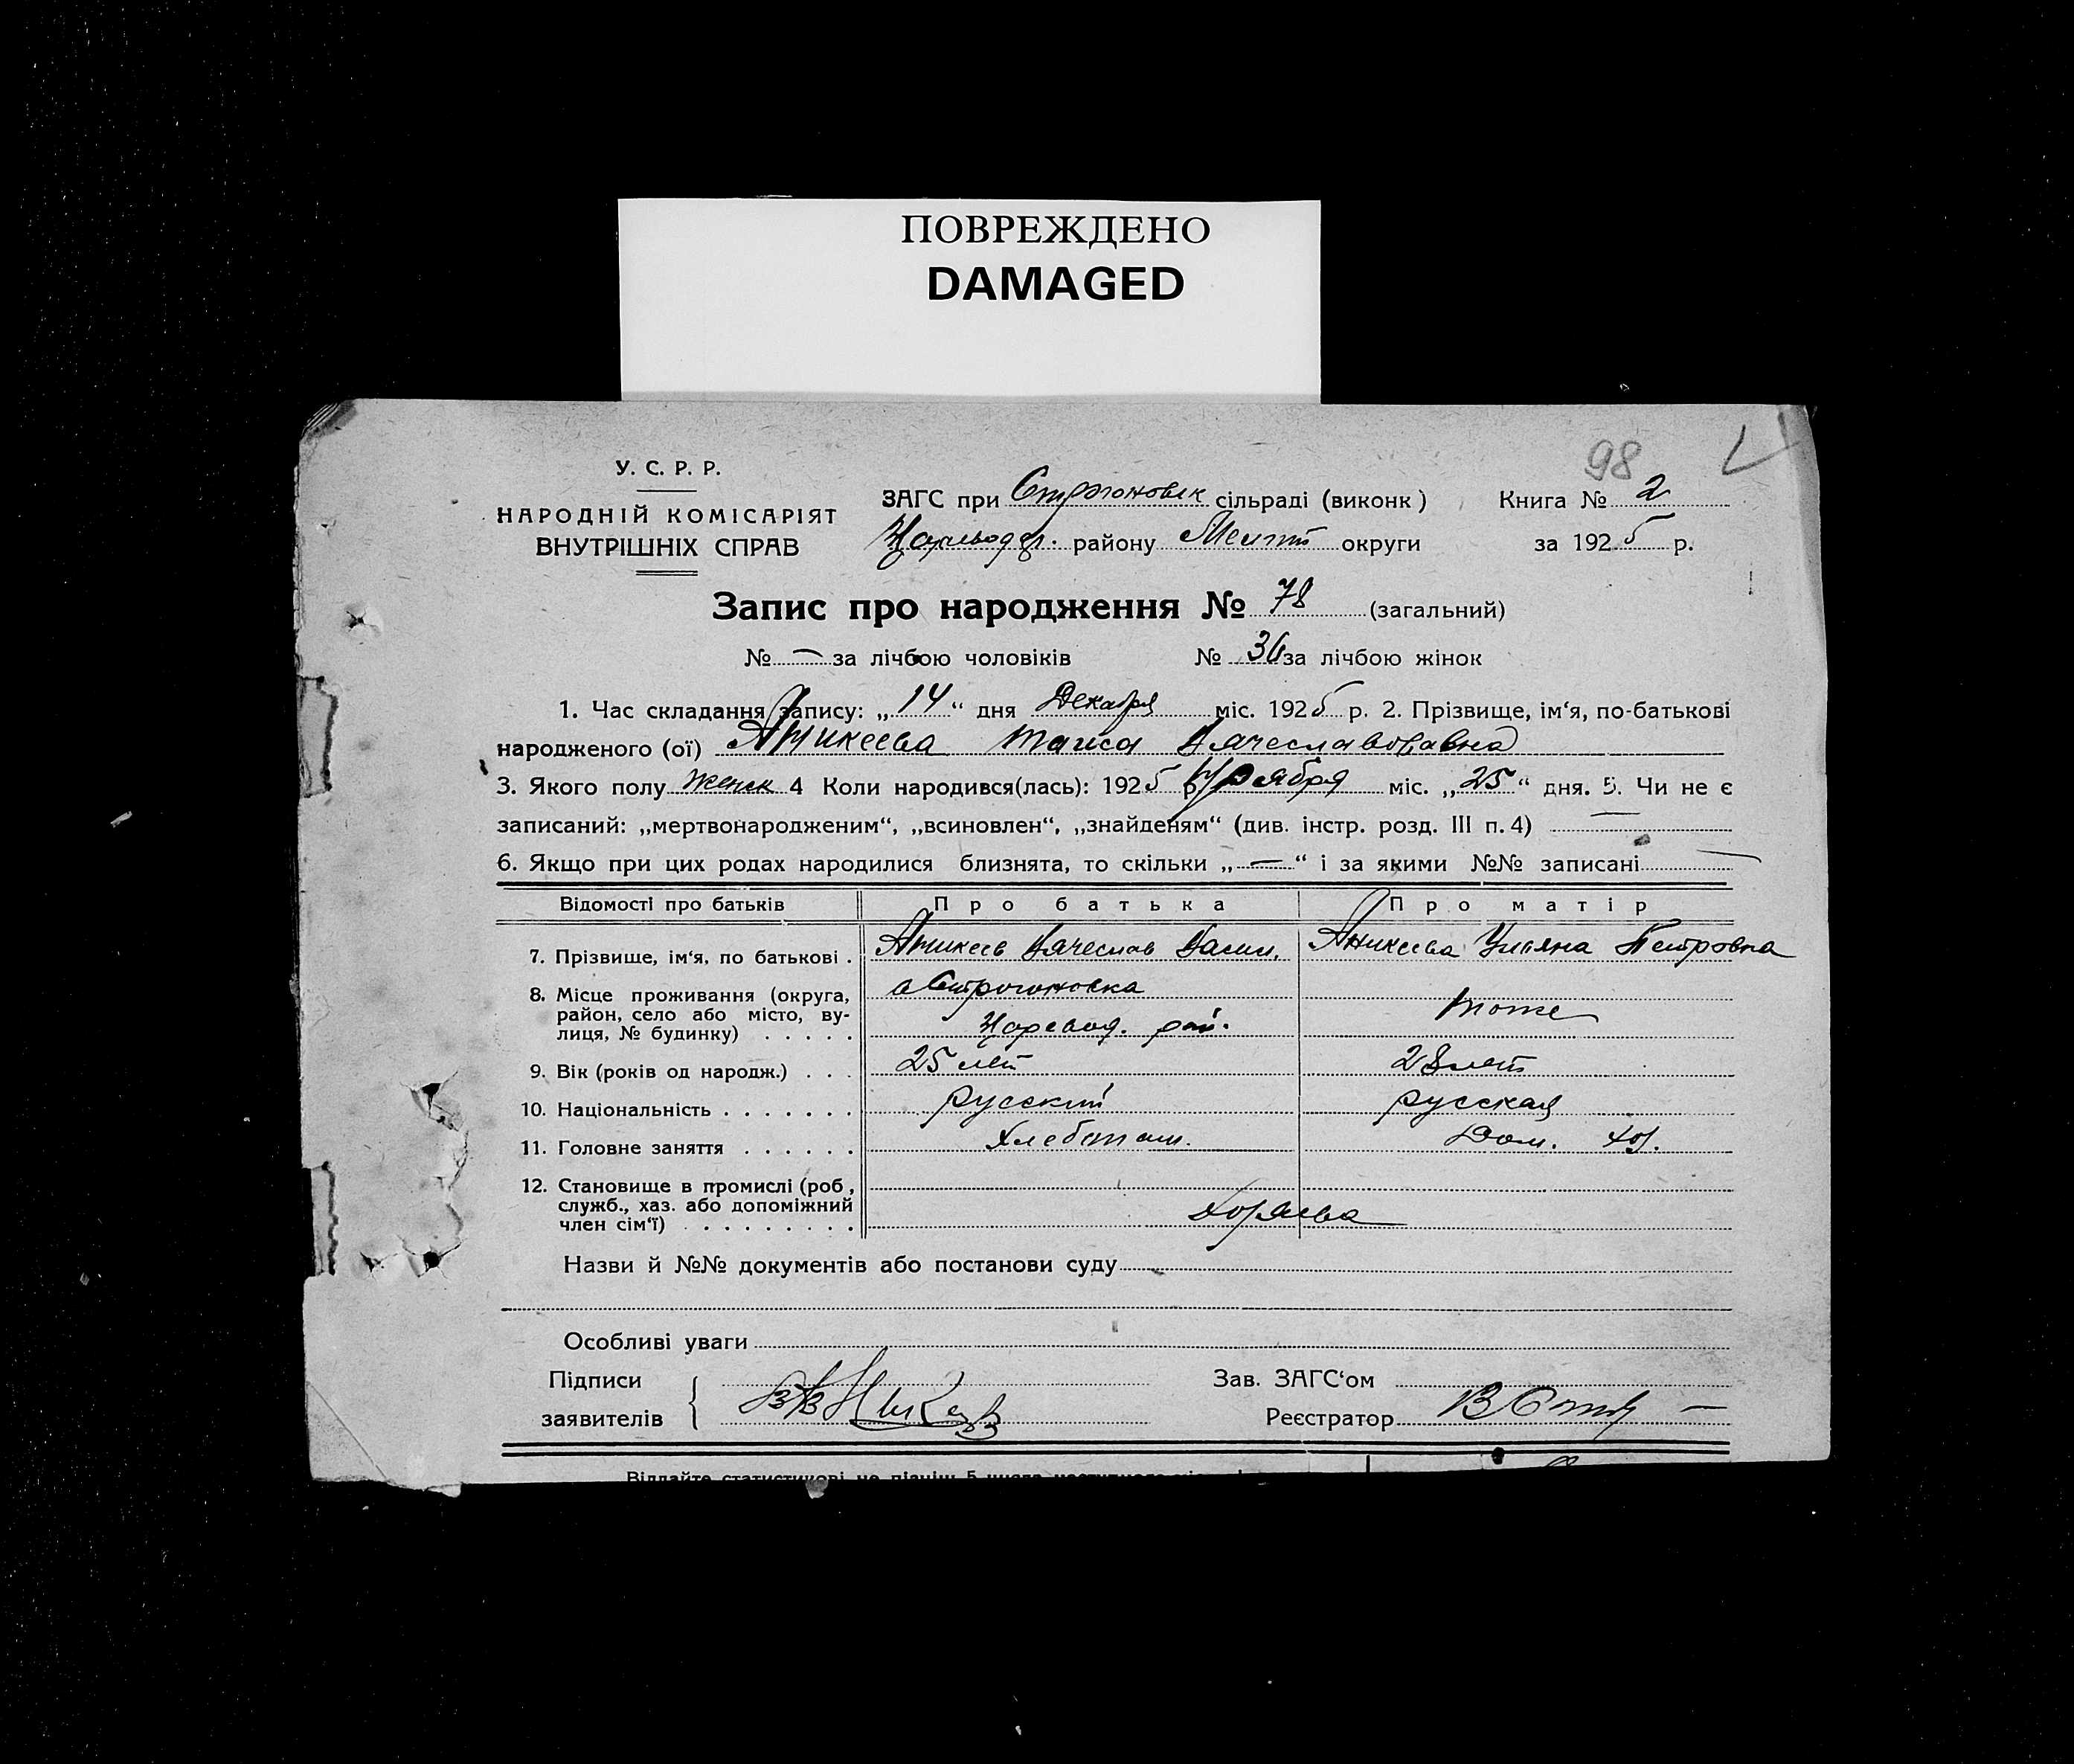 ПОВРЕЖДЕНО
DAMAGED
98
У. С. Р. Р.
НАРОДНІЙ КОМІСАРІЯТ
ВНУТРІШНІХ СПРАВ
ЗАГС при Строгоновск сільраді (виконк)
району Мелит округи
Книга № 2
за 1925 р.
Запис про народження № 78 (загальний)
№ — за лічбою чоловіків № 36 за лічбою жінок
1. Час складання запису: „14“ дня Декабря міс. 1925 р. 2. Прізвище, ім‘я, по-батькові
народженого (ої) Аникеева Таиса
3. Якого полу Женск 4 Коли народився(лась): 1925 р Ноября міс. „25“ дня. 5. Чи не є
записаний: „мертвонародженим“, „всиновлен“, „знайденям“ (див. інстр. розд. III п. 4) —
6. Якщо при цих родах народилися близнята, то скільки „—“ і за якими №№ записані —
Відомості про батьків Про батька Про матір
7. Прізвище, ім‘я, по батькові . Аникеев Вячеслав Васил. Аникеева Ульяна Петровна
8. Місце проживання (округа, Строгоновка
район, село або місто, ву- тоже
лиця, № будинку) . . . . . Царевод. рай.
9. Вік (років од народж.) . . . 25 лет 28 лет
10. Національність . . . . . . . русский русская
11. Головне заняття . . . . . . Хлебопаш. Дом. хоз.
12. Становище в промислі (роб,
служб., хаз. або допоміжний
член сім‘ї) . . . . . . . . . Хозяева
Назви й №№ документів або постанови суду
Особливі уваги
Підписи
заявителів
Зав. ЗАГС‘ом
Реєстратор